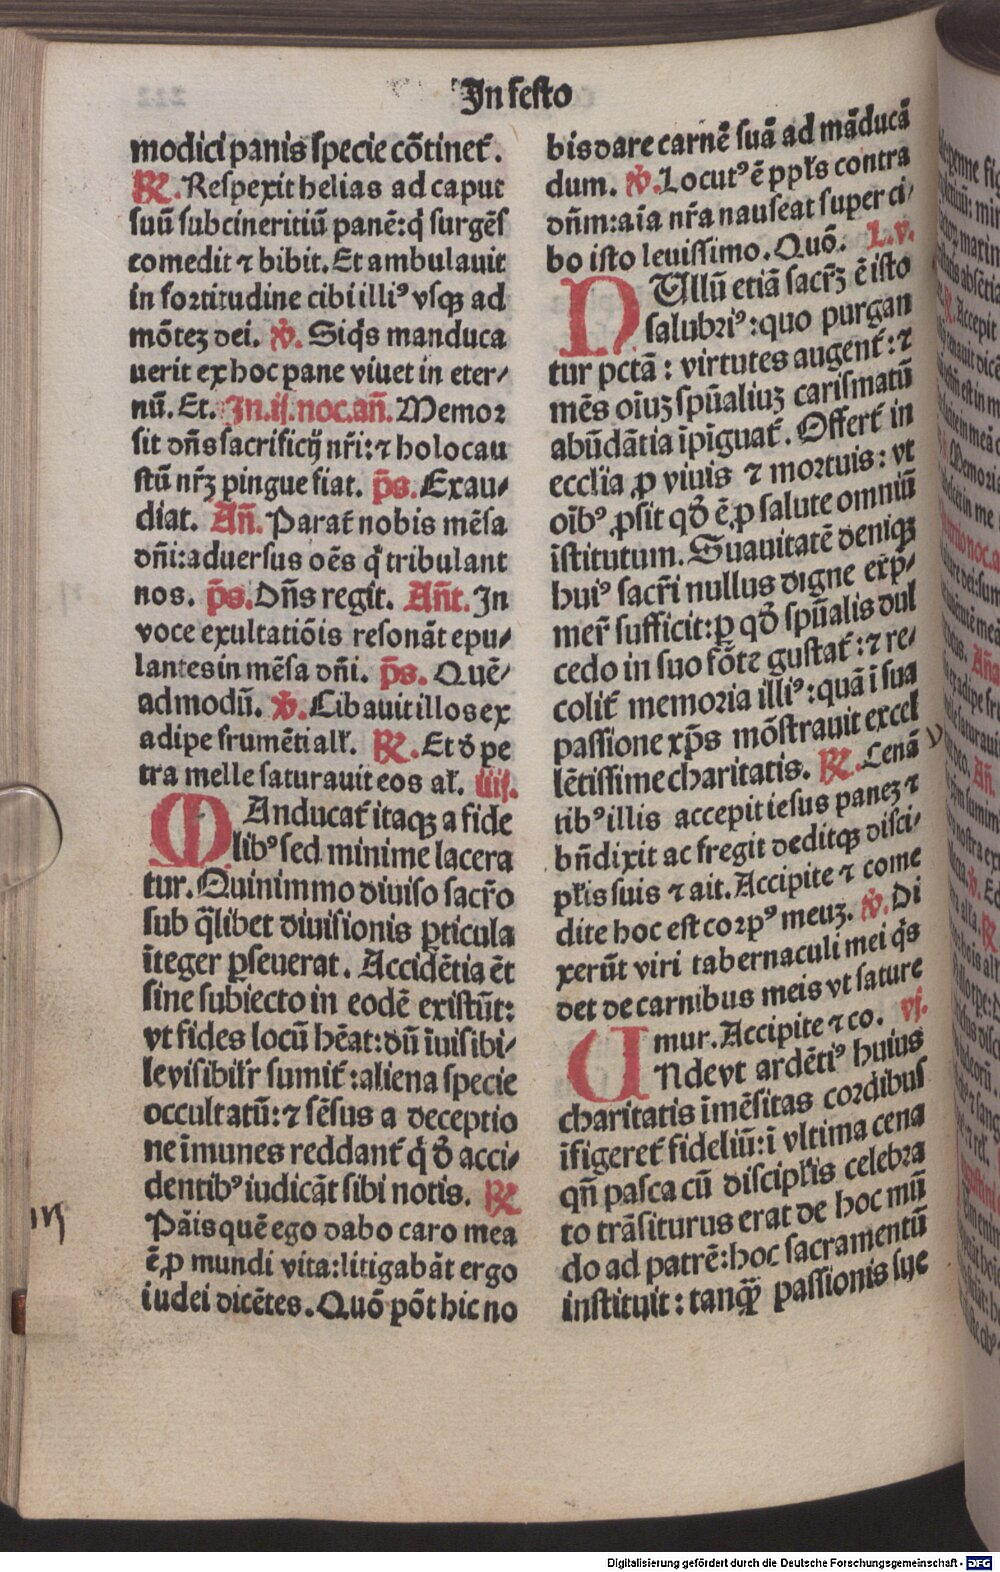 In festo
modici panis specie cōtinet᷑.
℞. Respexit helias ad caput
suū subcineritiū panē: q̇ surgēs
comedit ⁊ bibit. Et ambulauit
in fortitudine cibi illiꝰ vsqꝫ ad
mōteꝫ dei. ℣. Siq̇s manduca
uerit ex hoc pane viuet in eter⸗
nū. Et. In.ij.noc.an̄. Memor
sit dn̄s sacrificij nr̄i: ⁊ holocau
stū nrꝫ pingue fiat. p̄s. Exau⸗
diat. An̄. Parat᷑ nobis mēsa
dn̄i: aduersus oēs q̇ tribulant
nos. p̄s. Dn̄s regit. An̄t. In
voce exultatiōis resonāt epu⸗
lantes in mēsa dn̄i. p̄s. Quē⸗
admodū. ℣. Cibauit illos ex
adipe frumēti alꝉ. ℞. Et d̄ pe
tra melle saturauit eos aꝉ. iiij.
MAnducat᷑ itaqꝫ a fide
libꝰ sed minime lacera
tur. Quinimmo diuiso sacr̄o
sub q̄libet diuisionis ꝑticula
īteger ꝑseuerat. Accidētia ēt
sine subiecto in eodē existūt:
vt fides locū hēat: dū īuisibi⸗
le visibiꝉr sumit᷑: aliena specie
occultatū: ⁊ sēsus a deceptio
ne īmunes reddant᷑ q̇ d̄ acci⸗
dentibꝰ iudicāt sibi notis. ℞
Pāis quē ego dabo caro mea
ē ꝓ mundi vita: litigabāt ergo
iudei dicētes. Quō pōt hic no
bis dare carnē suā ad māducā
dum. ℣. Locutꝰ ē ppꝉs contra
dn̄m: aīa nr̄a nauseat super ci⸗
bo isto leuissimo. Quō. L.v.
NUllū etiā sacrꝫ ē isto
salubriꝰ: quo purgan
tur pctā: virtutes augent᷑: ⁊
mēs oīuꝫ spūaliuꝫ carismatū
abūdātia īpīguat᷑. Offert᷑ in
ecclīa ꝓ viuis ⁊ mortuis: vt
oībꝰ ꝓsit qd̄ ē ꝓ salute omniū
īstitutum. Suauitatē deniqꝫ
huiꝰ sacr̄i nullus digne exp̄⸗
mer̄ sufficit: ꝑ qd̄ spūalis dul
cedo in suo fōte gustat᷑: ⁊ re⸗
colit᷑ memoria illiꝰ: quā ī sua
passione xp̄s mōstrauit excel
lētissime charitatis. ℞. Cenā
tibꝰ illis accepit iesus paneꝫ ⁊
bn̄dixit ac fregit deditqꝫ disci⸗
pꝉis suis ⁊ ait. Accipite ⁊ come
dite hoc est corpꝰ meuꝫ. ℣. Di
xerūt viri tabernaculi mei q̇s
det de carnibus meis vt sature
mur. Accipite ⁊ co. vj.
UNde vt ardētiꝰ huius
charitatis īmēsitas cordibus
īfigeret᷑ fideliū: ī vltima cena
qn̄ pasca cū discipꝉis celebra
to trāsiturus erat de hoc mū
do ad patrē: hoc sacramentū
instituit: tanqꝫ̄ passionis sue
Digitalisierung gefördert durch die Deutsche Forschungsgemeinschaft - DFG